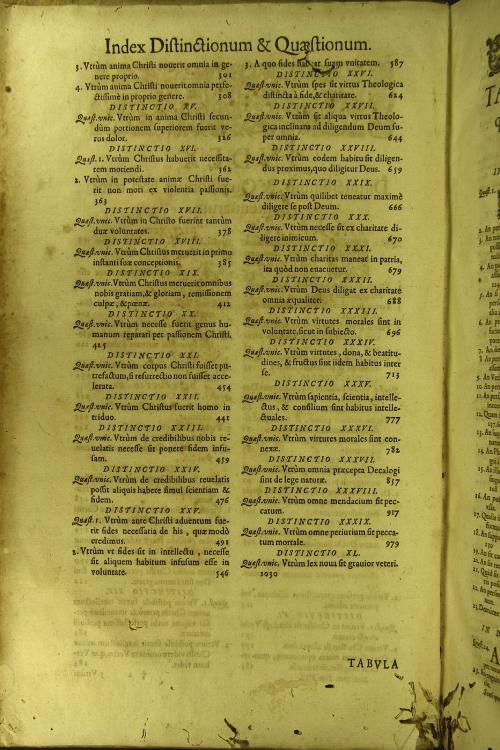 Index Distinctionum & Quæstionum.
3. Vtrùm anima Christi nouerit omnia in ge-
nere proprio. 301
4. Vtrùm anima Christi nouerit omnia perfe-
ctissimè in proprio genere. 308
DISTINCTIO XV.
Quæst.vnic. Vtrùm in anima Christi secun-
dùm portionem superiorem fuerit ve-
rus dolor. 326
DISTINCTIO XVI.
Quæst. 1. Vtrùm Christus habuerit necessita-
tem moriendi. 362
2. Vtrùm in potestate animæ Christi fue-
rit non mori ex violentia passionis.
363
DISTINCTIO XVII.
Quæst.vnic. Vtrùm in Christo fuerint tantùm
duæ voluntates. 378
DISTINCTIO XVIII.
Quæst.vnic. Vtrùm Christus meruerit in primo
instanti suæ conceptionis. 385
DISTINCTIO XIX.
Quæst.vnic. Vtrùm Christus meruerit omnibus
nobis gratiam, & gloriam, remissionem
culpæ, & pœnæ. 412
DISTINCTIO XX.
Quæst.vnic. Vtrùm necesse fuerit genus hu-
manum reparari per passionem Christi.
425
DISTINCTIO XXI.
Quæst.vnic. Vtrùm corpus Christi fuisset pu-
trefactum, si resurrectio non fuisset acce-
lerata. 454
DISTINCTIO XXII.
Quæst.vnic. Vtrùm Christus fuerit homo in
triduo. 441
DISTINCTIO XXIII.
Quæst.vnic. Vtrùm de credibilibus nobis re-
uelatis necesse sit ponere fidem infu-
sam. 459
DISTINCTIO XXIV.
Quæst.vnic. Vtrùm de credibilibus reuelatis
possit aliquis habere simul scientiam &
fidem. 476
DISTINCTIO XXV.
Quæst. 1. Vtrùm ante Christi aduentum fue-
rit fides necessaria de his, quæ modò
credimus. 491
2. Vtrùm vt fides sit in intellectu, necesse
sit aliquem habitum infusum esse in
voluntate. 546
3. A quo fides habeat suam vnitatem. 587
DISTINCTIO XXVI.
Quæst.vnic. Vtrùm spes sit virtus Theologica
distincta à fide, & charitate. 624
DISTINCTIO XXVII.
Quæst.vnic. Vtrùm sit aliqua virtus Theolo-
gica inclinans ad diligendum Deum su-
per omnia. 644
DISTINCTIO XXVIII.
Quæst.vnic. Vtrùm eodem habitu sit diligen-
dus proximus, quo diligitur Deus. 659
DISTINCTIO XXIX.
Quæst.vnic. Vtrùm quilibet teneatur maximè
diligere se post Deum. 666
DISTINCTIO XXX.
Quæst.vnic. Vtrùm necesse sit ex charitate di-
ligere inimicum. 670
DISTINCTIO XXXI.
Quæst.vnic. Vtrùm charitas maneat in patria,
ita quòd non euacuetur. 679
DISTINCTIO XXXII.
Quæst.vnic. Vtrùm Deus diligat ex charitate
omnia æqualiter. 688
DISTINCTIO XXXIII.
Quæst.vnic. Vtrùm virtutes morales sint in
voluntate, sicut in subiecto. 696
DISTINCTIO XXXIV.
Quæst.vnic. Vtrùm virtutes, dona, & beatitu-
dines, & fructus sint iidem habitus inter
se. 713
DISTINCTIO XXXV.
Quæst.vnic. Vtrùm sapientia, scientia, intelle-
ctus, & consilium sint habitus intelle-
ctuales. 777
DISTINCTIO XXXVI.
Quæst.vnic. Vtrùm virtutes morales sint con-
nexæ. 782
DISTINCTIO XXXVII.
Quæst.vnic. Vtrùm omnia præcepta Decalogi
sint de lege naturæ. 857
DISTINCTIO XXXVIII.
Quæst.vnic. Vtrùm omne mendacium sit pec-
catum. 917
DISTINCTIO XXXIX.
Quæst.vnic. Vtrùm omne periurium sit pecca-
tum mortale. 979
DISTINCTIO XL.
Quæst.vnic. Vtrùm lex noua sit grauior veteri.
1030
TABVLA